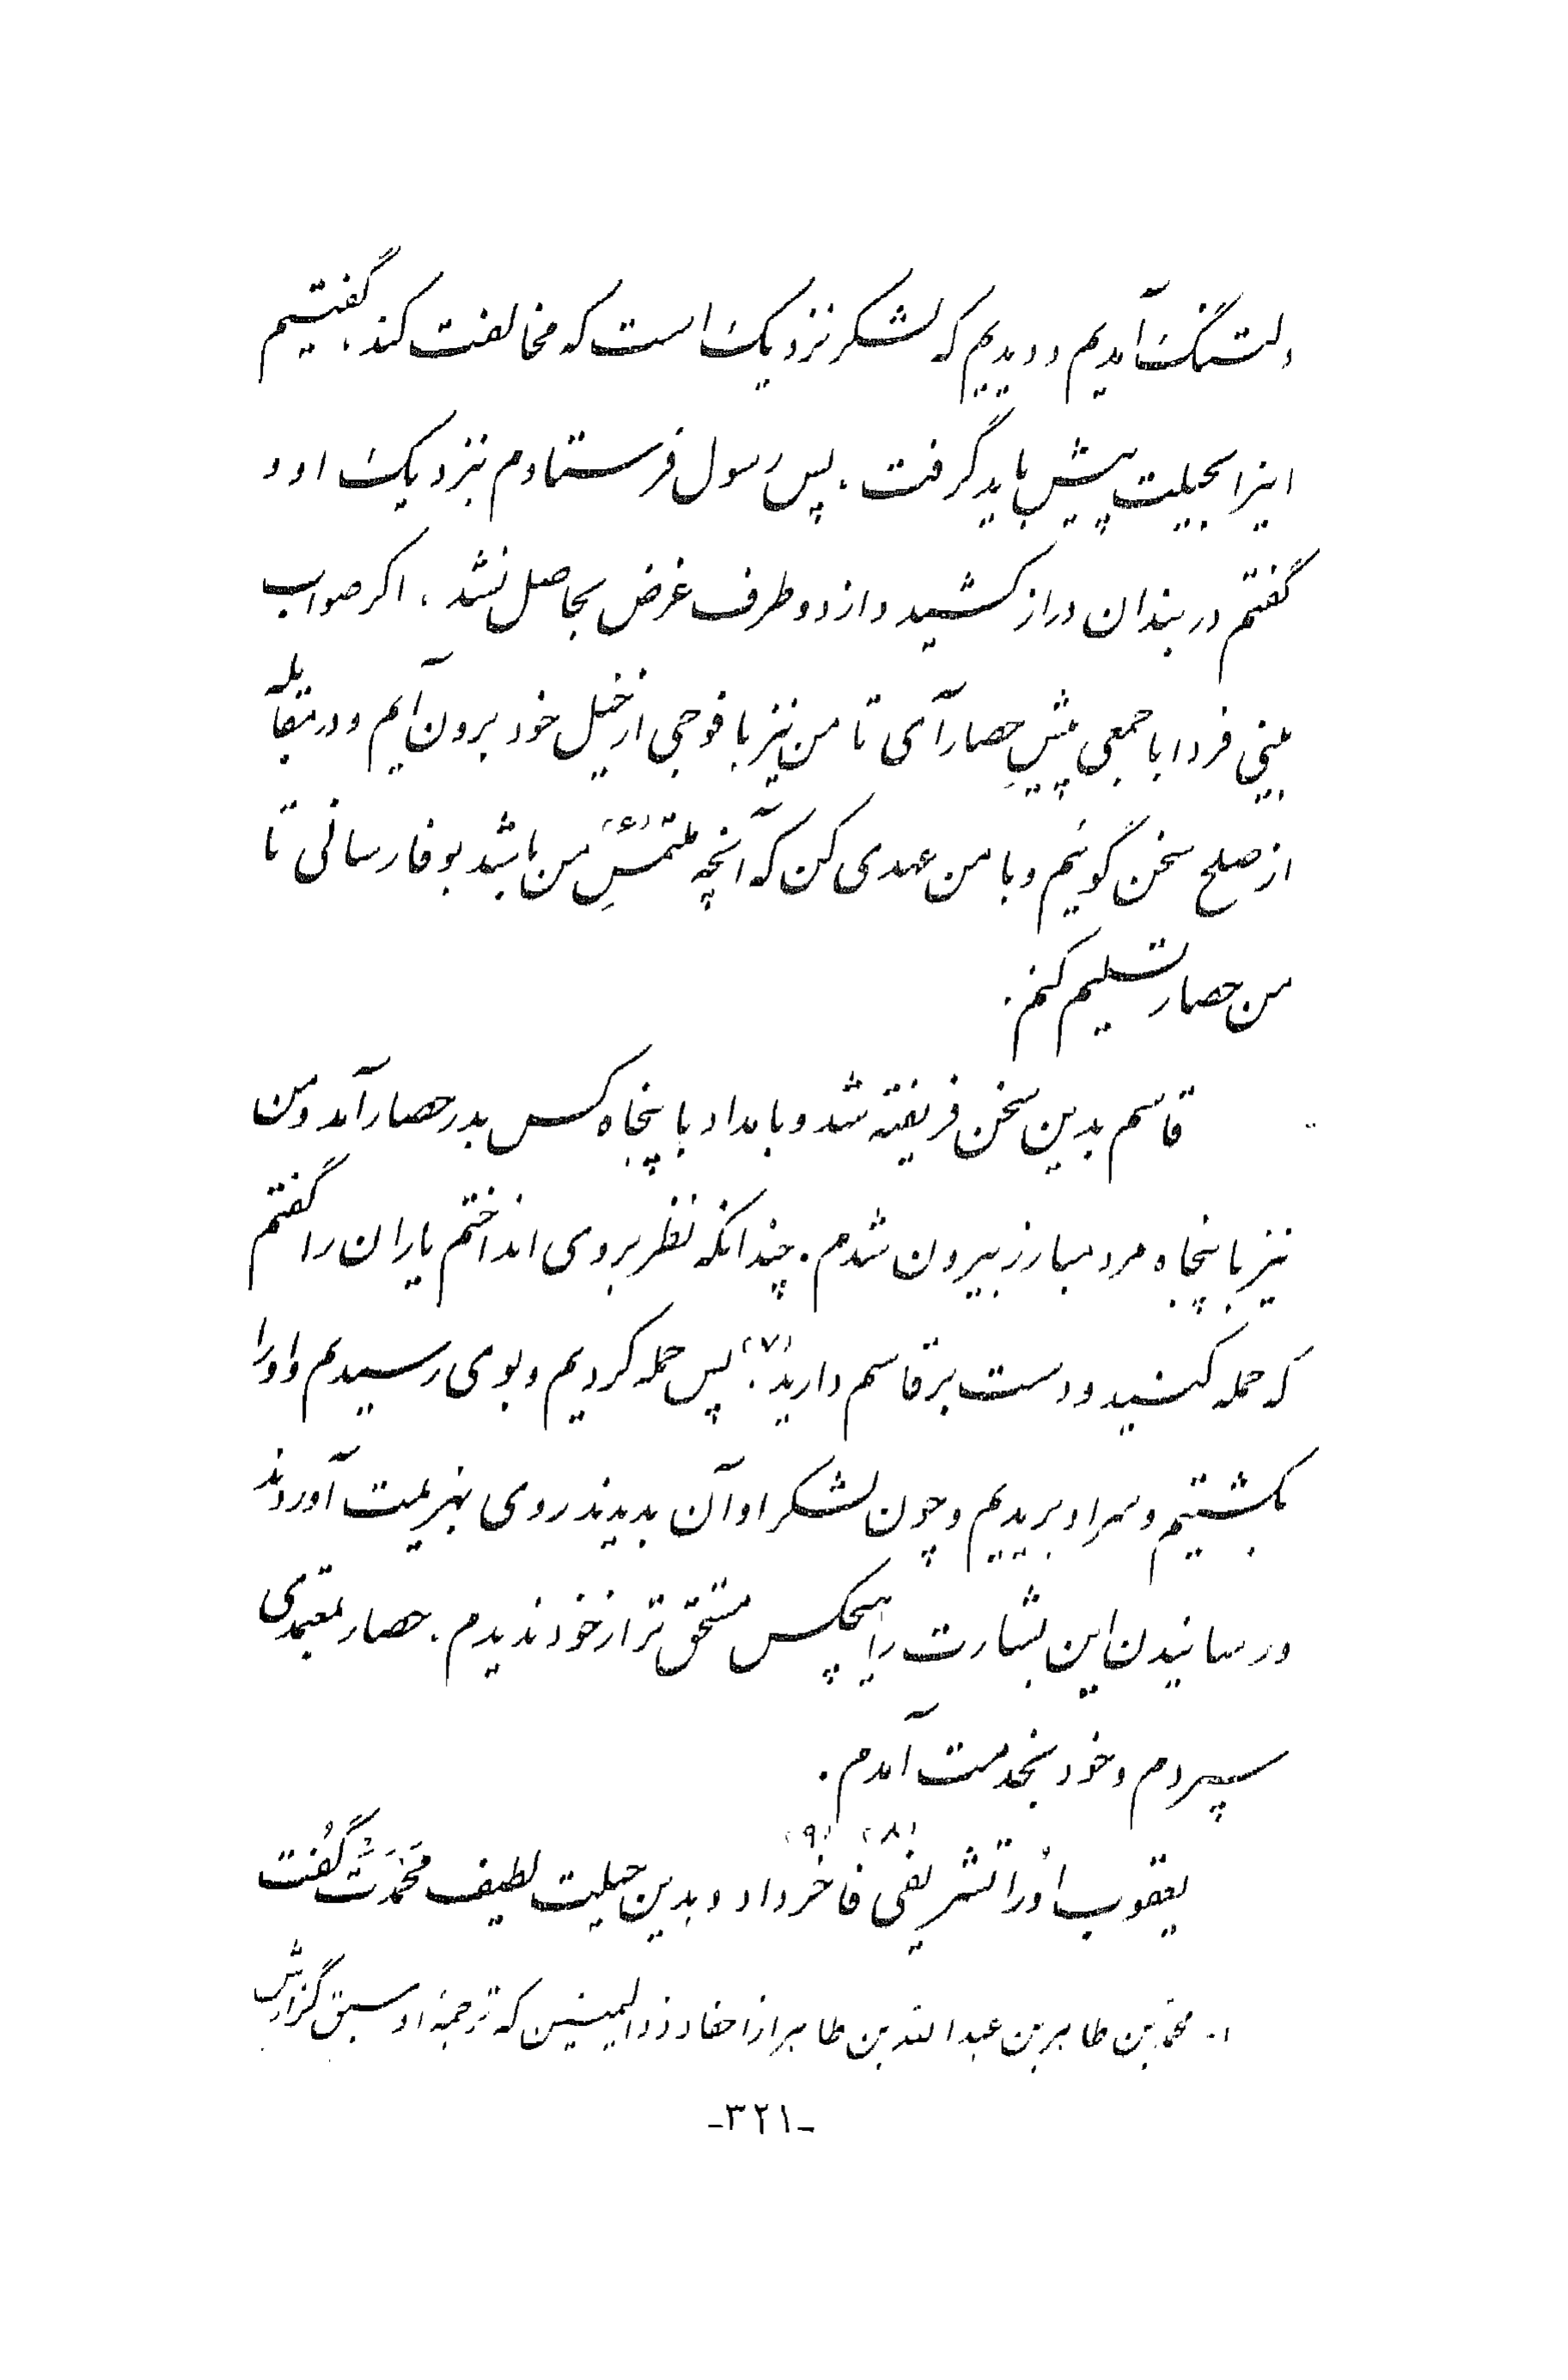 دلتنگ آمدیم و دیدیم که لشکر نزدیک است که مخالفت کند، گفتیم
اینرا بحیلت پیش باید گرفت. پس رسول فرستادم بنزدیک او و
گفتم در بندان دراز کشید و از دو طرف غرض بحاصل نشد، اگر صواب
بینی فردا با جمعی پیشِ حصار آی تا من نیز با فوجی از خیل خود برون آیم و در مقابله
از صلح سخن گوئیم و با من عهدی کن که آنچه ملتمسِ (۶) من باشد بوفا رسانی تا
من حصار تسلیم کنم.
قاسم بدین سخن فریفته شد و بامداد با پنجاه کس بدر حصار آمد و من
نیز با پنجاه مرد مبارز بیرون شدم. چندانکه نظر بروی انداختم یاران را گفتم
که حمله کنید و دست بر قاسم دارید (۷). پس حمله کردیم و بوی رسیدیم و او را
بکشتیم و سر او بریدیم و چون لشکر او آن بدیدند روی بهزیمت آوردند
و رسانیدن این بشارت را هیچکس مستحق تر از خود ندیدم. حصار بمعتمدی
سپردم و خود بخدمت آمدم.
یعقوب او را تشریفی (۸) فاخر (۹) داد و بدین حیلت لطیف مَحْمَدَتْ گُفت
۱- محمد بن طاهر بن عبدالله بن طاهر از احفاد ذوالیمینین که ترجمهٔ او سبق گزارش
-۳۲۱-